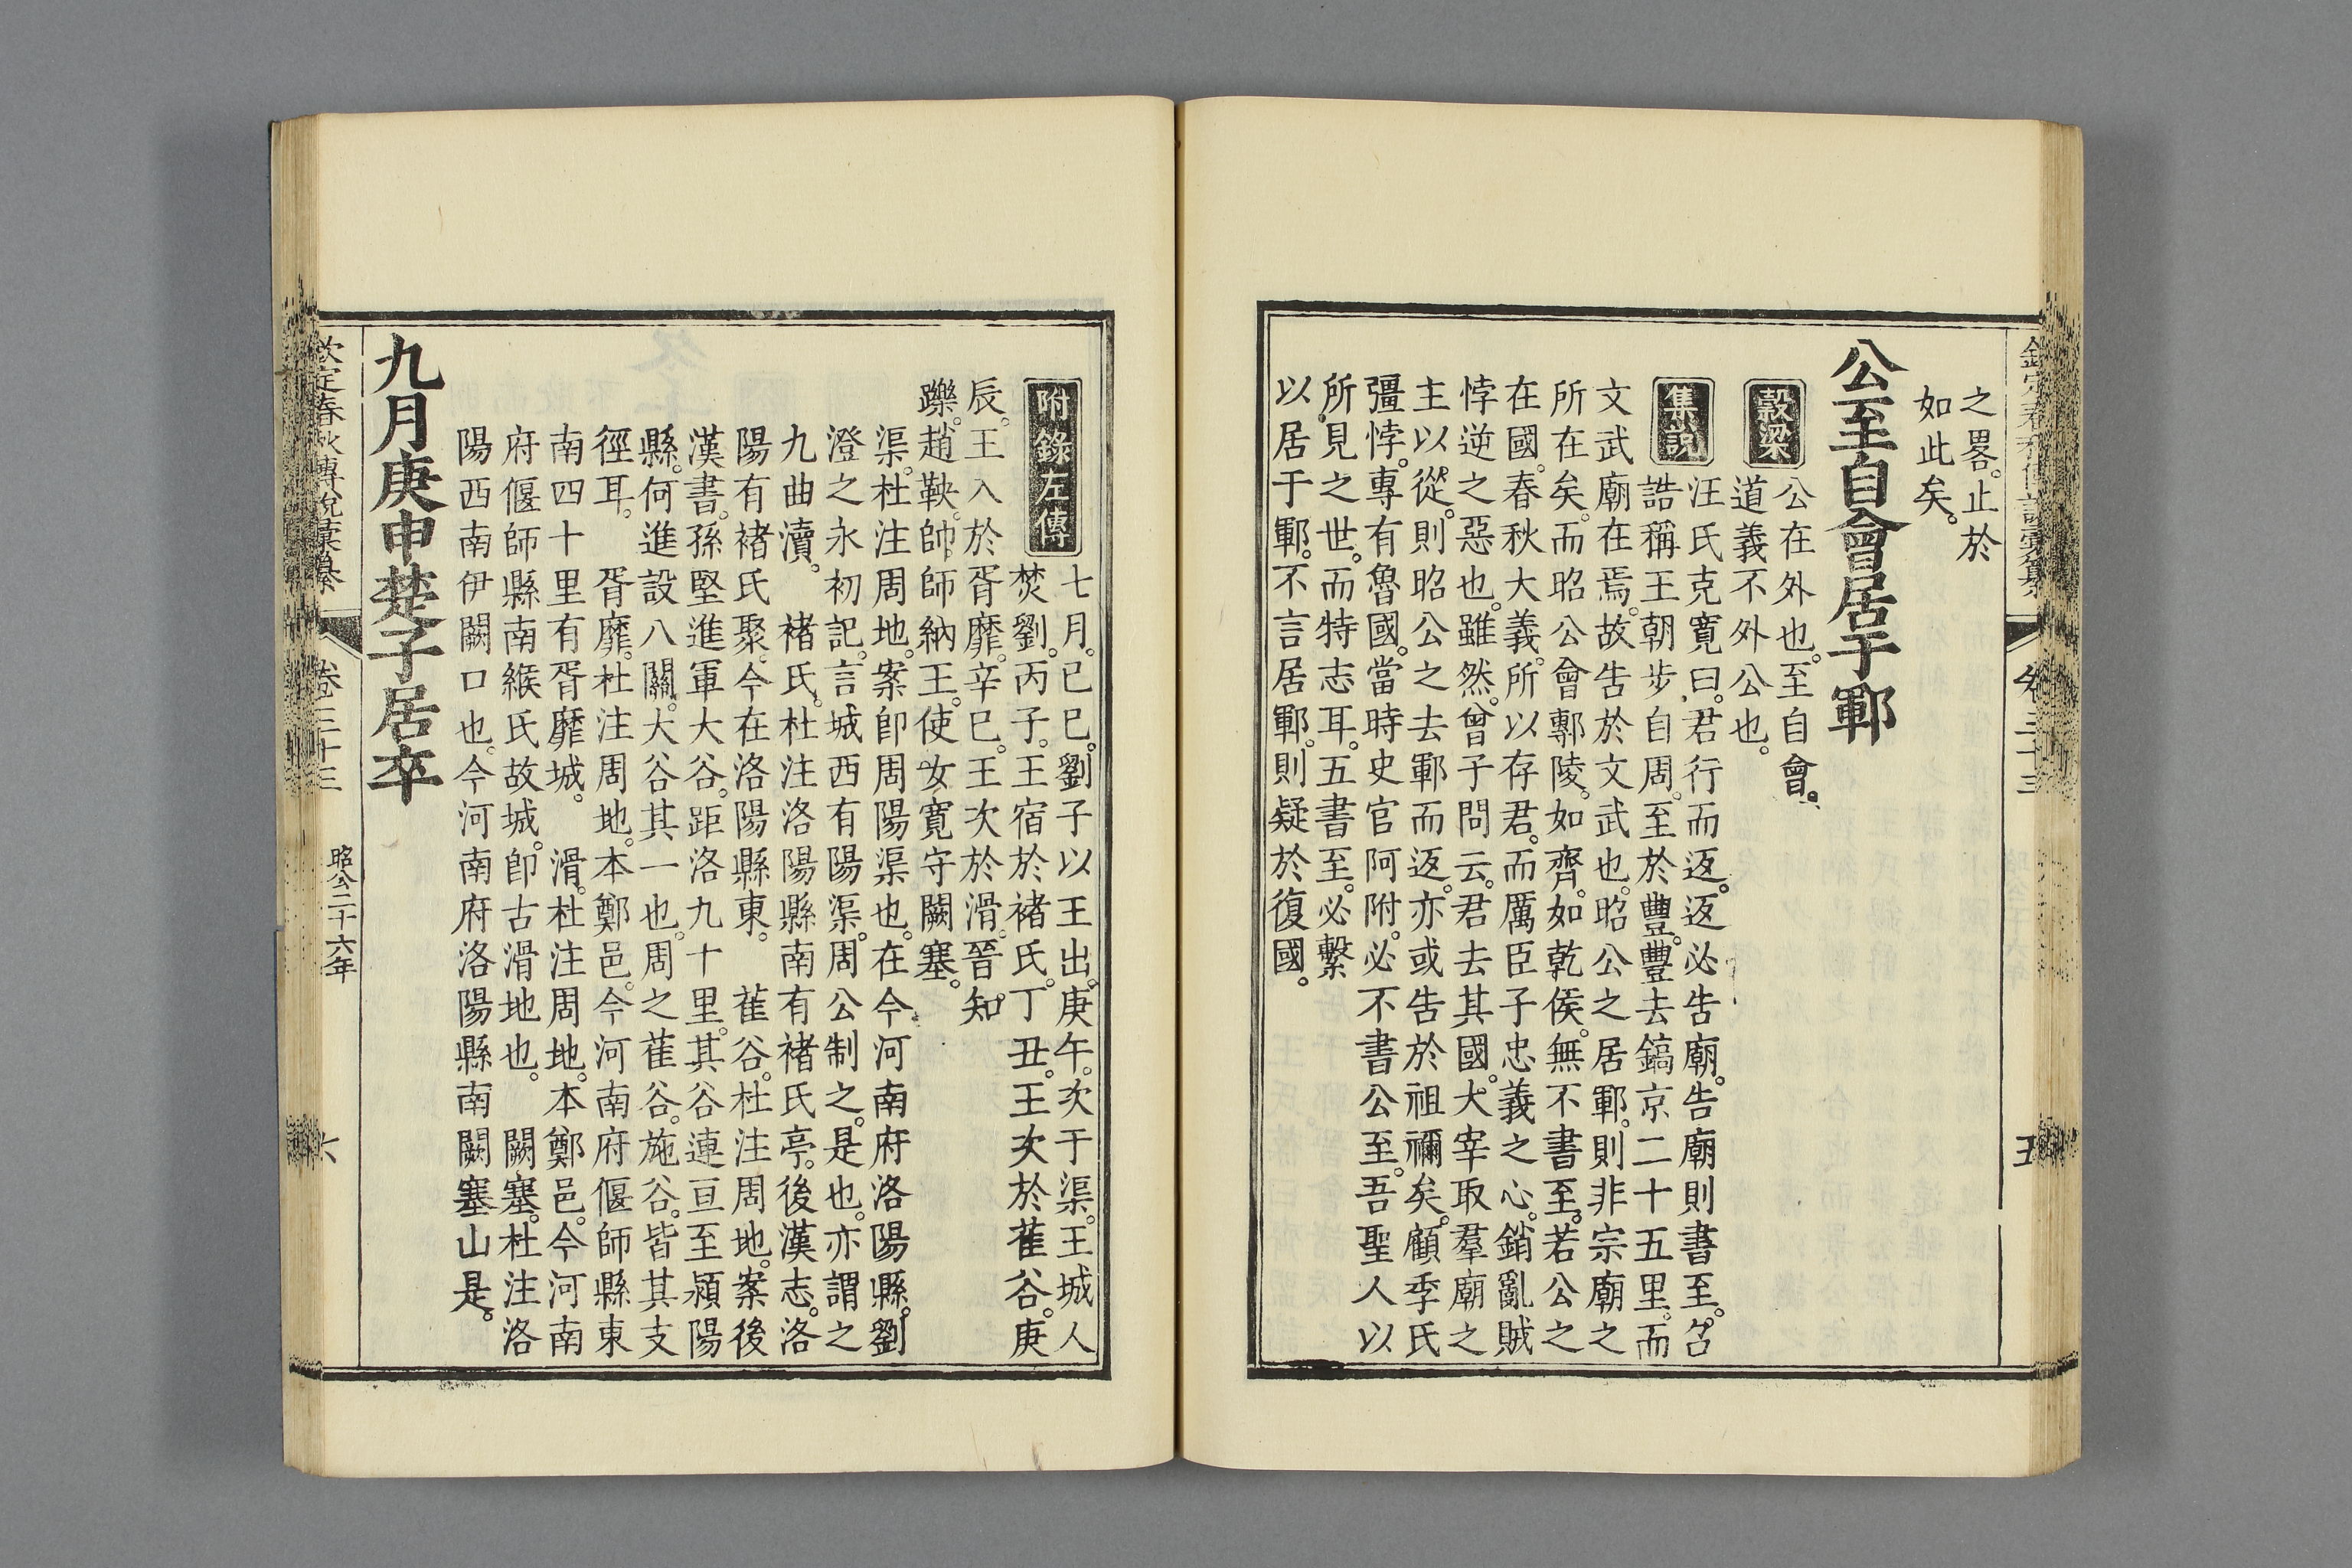 之畧。止於
如此矣。
公至自會居于鄆
穀梁
公在外也。至自會。
道義不外公也。
集說
汪氏克寬曰。君行而返。返必告廟。告廟則書至。召
誥稱王朝步自周。至於豐。豐去鎬京二十五里。而
文武廟在焉。故告於文武也。昭公之居鄆。則非宗廟之
所在矣。而昭公會鄟陵。如齊。如乾侯。無不書至。若公之
在國。春秋大義。所以存君。而厲臣子忠義之心。銷亂賊
悖逆之惡也。雖然。曾子問云。君去其國。大宰取羣廟之
主以從。則昭公之去鄆而返。亦或告於祖禰矣。顧季氏
彊悖。專有魯國。當時史官阿附。必不書公至。吾聖人以
所見之世。而特志耳。五書至。必繫
以居于鄆。不言居鄆。則疑於復國。
欽定春秋傳說彙纂
卷三十三
五
附錄左傳
七月。已巳。劉子以王出。庚午。次于渠。王城人
焚劉。丙子。王宿於褚氏。丁丑。王次於萑谷。庚
辰。王入於胥靡。辛巳。王次於滑。晉知
躒。趙鞅。帥師納王。使女寬守闕塞。
渠。杜注周地。案卽周陽渠也。在今河南府洛陽縣。劉
澄之永初記。言城西有陽渠。周公制之。是也。亦謂之
九曲瀆。褚氏。杜注洛陽縣南有褚氏亭。後漢志。洛
陽有褚氏聚。今在洛陽縣東。萑谷。杜注周地。案後
漢書。孫堅進軍大谷。距洛九十里。其谷連亘至潁陽
縣。何進設八關。大谷其一也。周之萑谷。施谷。皆其支
徑耳。胥靡。杜注周地。本鄭邑。今河南府偃師縣東
南四十里有胥靡城。滑。杜注周地。本鄭邑。今河南
府偃師縣南緱氏故城。卽古滑地也。闕塞。杜注洛
陽西南伊闕口也。今河南府洛陽縣南闕塞山是。
九月庚申楚子居卒
欽定春秋傳說彙纂
卷三十三
昭公二十六年
六